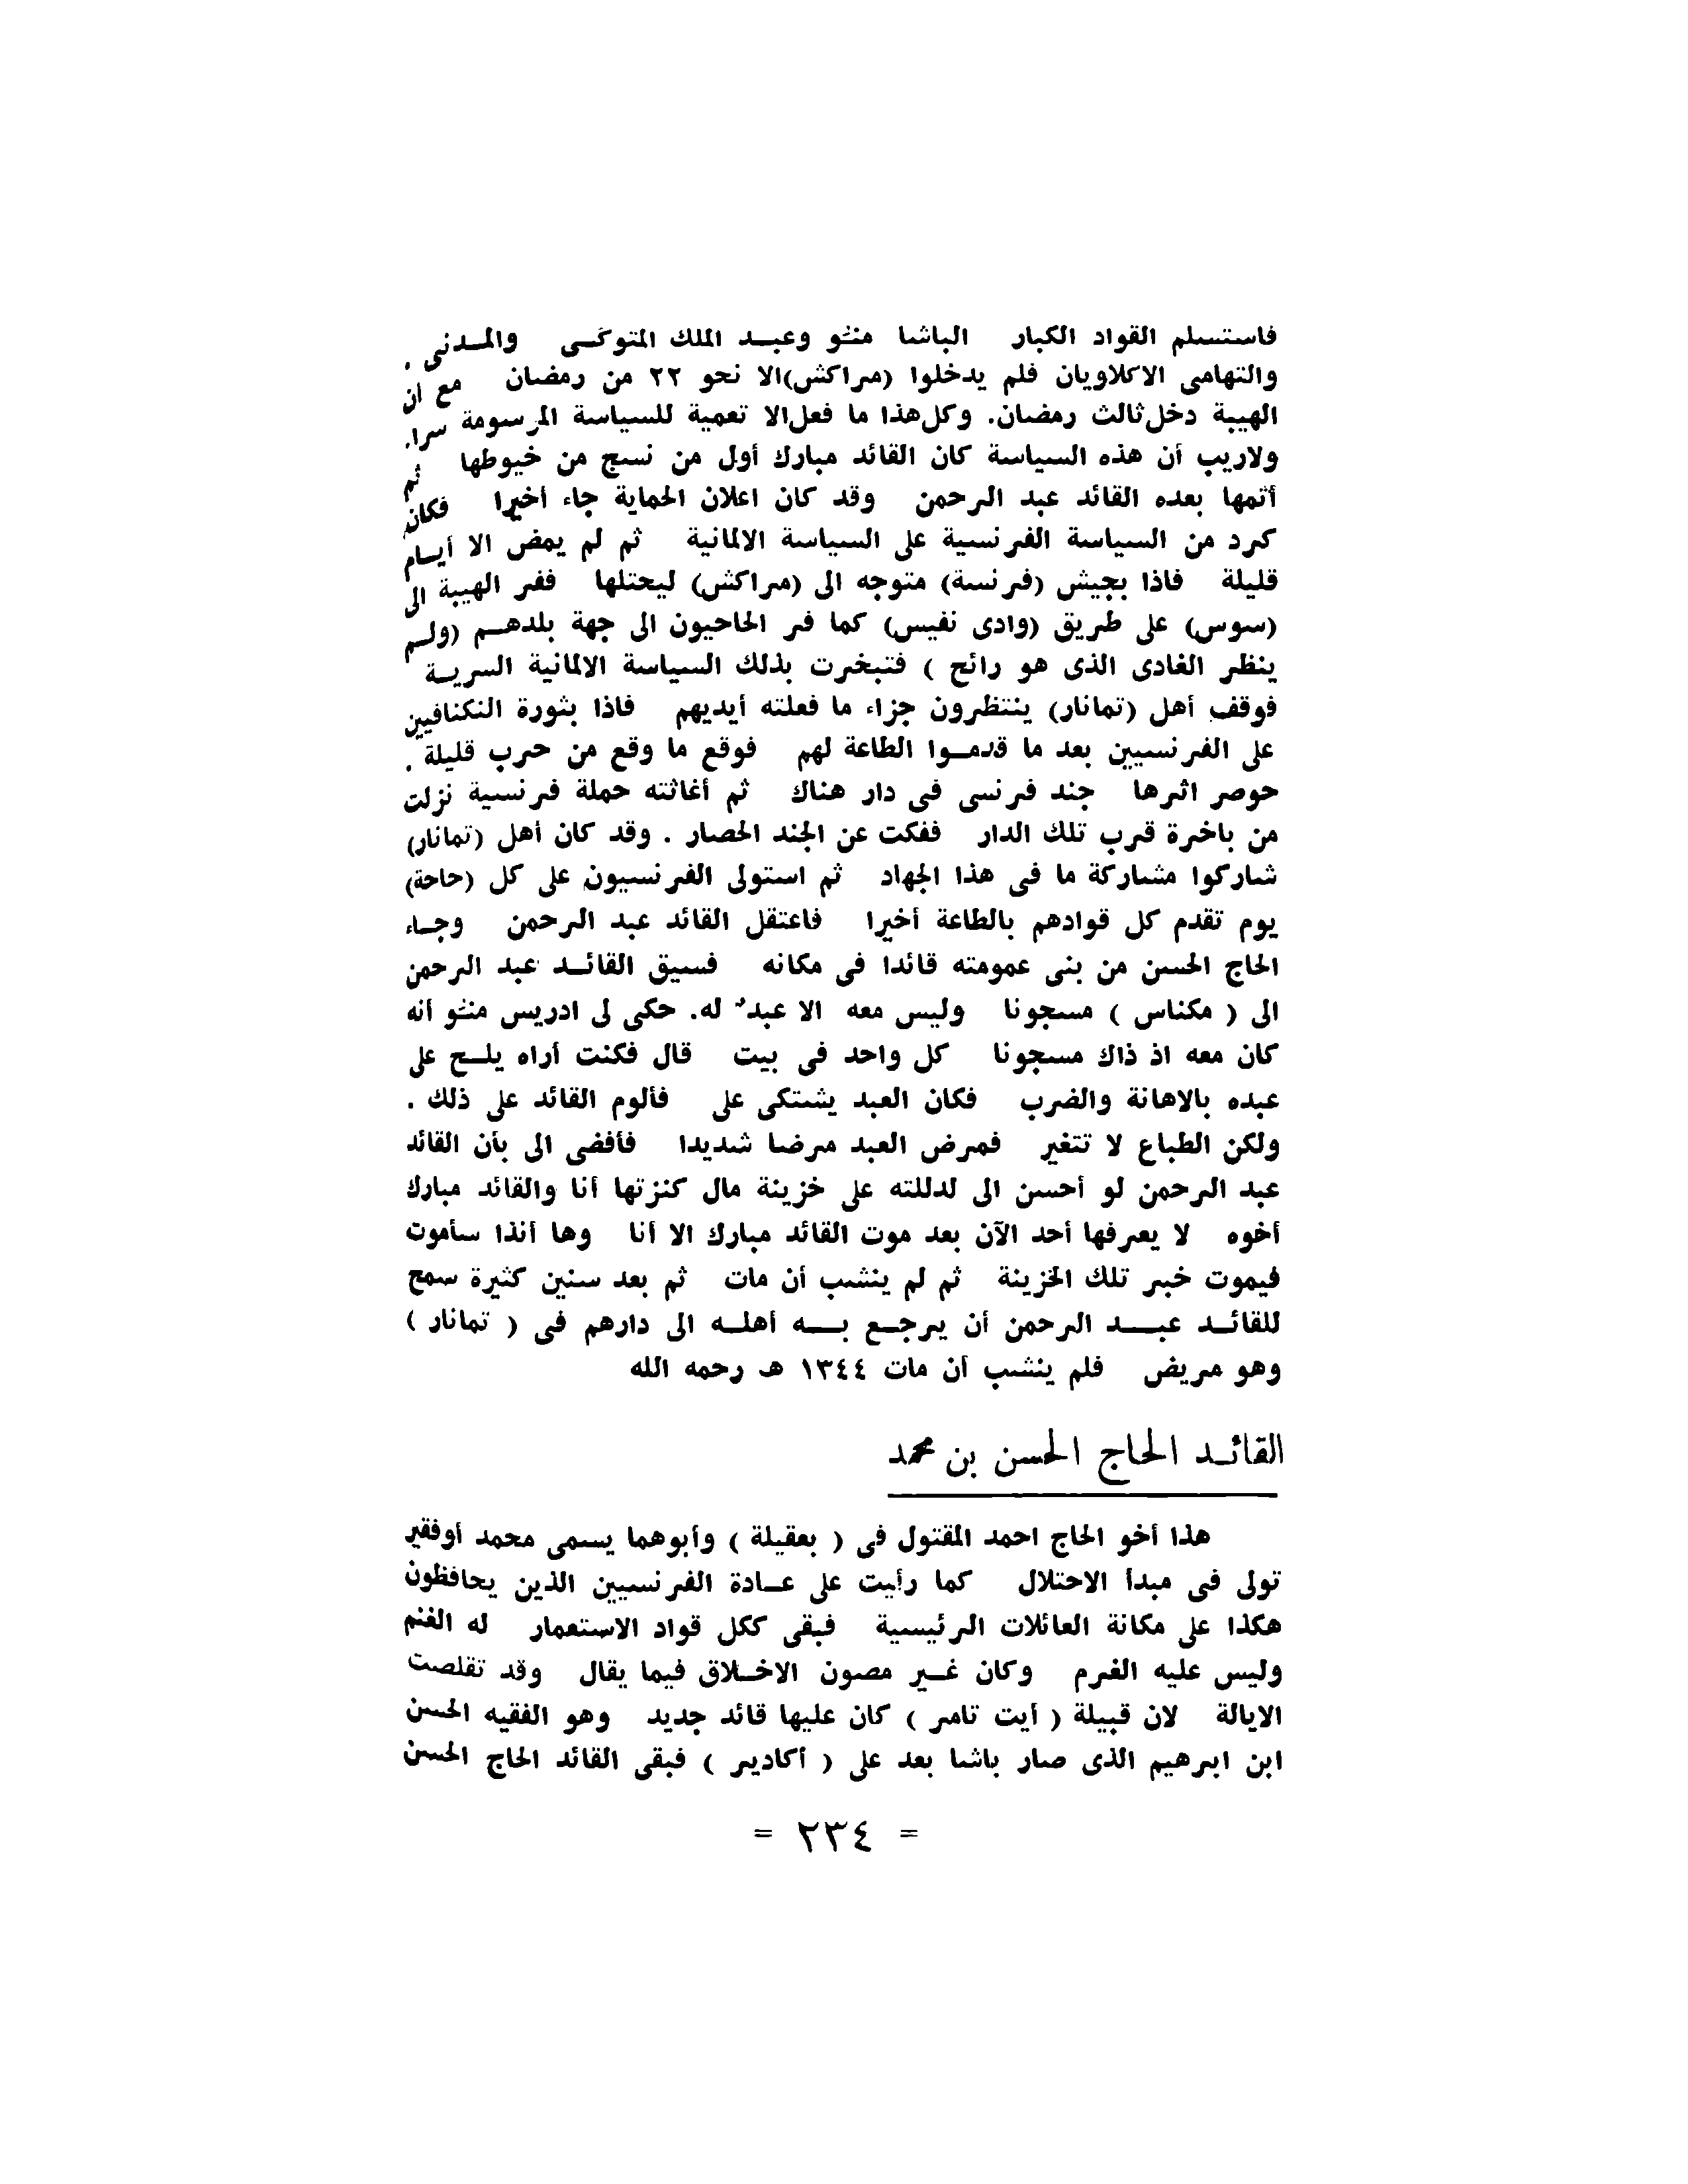 فاستسلم القواد الكبار الباشا منّو وعبــد الملك المتوكّــى والمــدنى .
والتهامى الاكلاويان فلم يدخلوا (مراكش)الا نحو ٢٢ من رمضان مع ان
الهيبة دخل ثالث رمضان. وكل هذا ما فعل الا تعمية للسياسة المرسومة سرا.
ولاريب أن هذه السياسة كان القائد مبارك أول من نسج من خيوطها ثم
أتمها بعده القائد عبد الرحمن وقد كان اعلان الحماية جاء أخيرا فكان
كرد من السياسة الفرنسية على السياسة الالمانية ثم لم يمض الا أيــام
قليلة فاذا بجيش (فرنسة) متوجه الى (مراكش) ليحتلها ففر الهيبة الى
(سوس) على طريق (وادى نفيس) كما فر الحاحيون الى جهة بلدهــم (ولــم
ينظر الغادى الذى هو رائح ) فتبخرت بذلك السياسة الالمانية السريــة
فوقف أهل (تمانار) ينتظرون جزاء ما فعلته أيديهم فاذا بثورة النكنافيين
على الفرنسيين بعد ما قدمــوا الطاعة لهم فوقع ما وقع من حرب قليلة .
حوصر اثرها جند فرنسى فى دار هناك ثم أغاثته حملة فرنسية نزلت
من باخرة قرب تلك الدار ففكت عن الجند الحصار . وقد كان أهل (تمانار)
شاركوا مشاركة ما فى هذا الجهاد ثم استولى الفرنسيون على كل (حاحة)
يوم تقدم كل قوادهم بالطاعة أخيرا فاعتقل القائد عبد الرحمن وجــاء
الحاج الحسن من بنى عمومته قائدا فى مكانه فسيق القائــد عبد الرحمن
الى ( مكناس ) مسجونا وليس معه الا عبدٌ له. حكى لى ادريس منّو أنه
كان معه اذ ذاك مسجونا كل واحد فى بيت قال فكنت أراه يلــح على
عبده بالاهانة والضرب فكان العبد يشتكى على فألوم القائد على ذلك .
ولكن الطباع لا تتغير فمرض العبد مرضا شديدا فأفضى الى بأن القائد
عبد الرحمن لو أحسن الى لدللته على خزينة مال كنزتها أنا والقائد مبارك
أخوه لا يعرفها أحد الآن بعد موت القائد مبارك الا أنا وها أنذا سأموت
فيموت خبر تلك الخزينة ثم لم ينشب أن مات ثم بعد سنين كثيرة سمح
للقائــد عبــــد الرحمن أن يرجــع بــــه أهلــه الى دارهم فى ( تمانار )
وهو مريض فلم ينشب أن مات ١٣٤٤ هـ رحمه الله
القائــد الحاج الحسن بن محمد
هذا أخو الحاج احمد المقتول فى ( بعقيلة ) وأبوهما يسمى محمد أوفقير
تولى فى مبدأ الاحتلال كما رأيت على عــادة الفرنسيين الذين يحافظون
هكذا على مكانة العائلات الرئيسية فبقى ككل قواد الاستعمار له الغنم
وليس عليه الغرم وكان غــير مصون الاخــلاق فيما يقال وقد تقلصت
الايالة لان قبيلة ( أيت تامر ) كان عليها قائد جديد وهو الفقيه الحسن
ابن ابرهيم الذى صار باشا بعد على ( أكادير ) فبقى القائد الحاج الحسن
= ٢٣٤ =